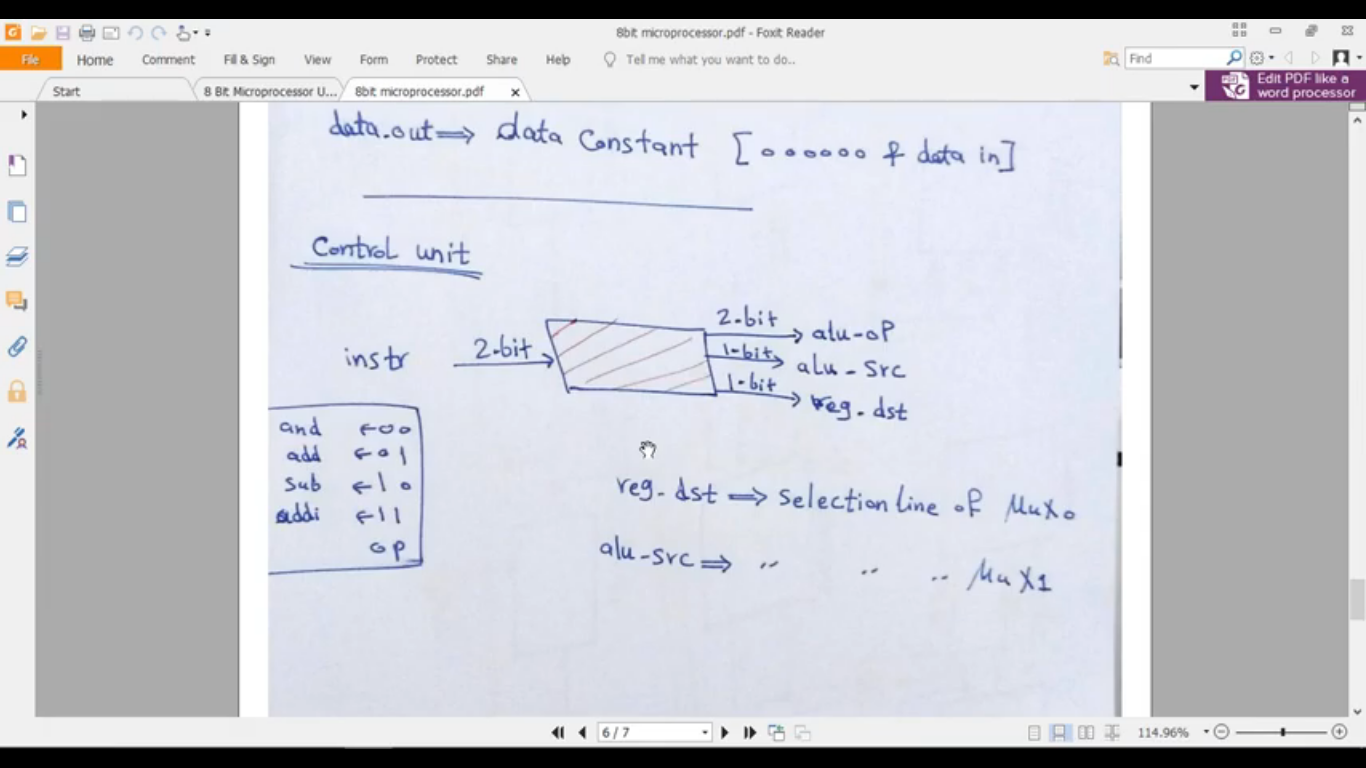 8bit microprocessor.pdf - Foxit Reader
File Home Comment Fill & Sign View Form Protect Share Help Tell me what you want to do.. Find
Start 8 Bit Microprocessor U... 8bit microprocessor.pdf
Edit PDF like a
word processor
data.out ⇒ data Constant [000000 & data in]
Control unit
instr 2-bit
2-bit alu-oP
1-bit alu-Src
1-bit reg.dst
and ←00
add ←01
sub ←10
addi ←11
op
reg-dst ⇒ Selection line of Mux0
alu-src ⇒ " " " Mux1
6 / 7
114.96%